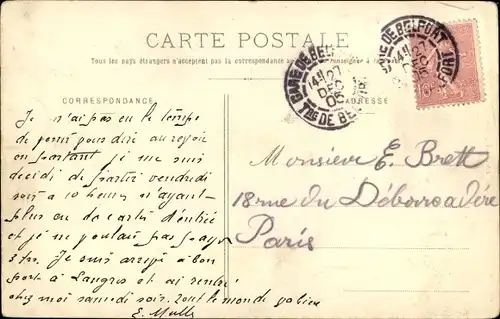 CARTE POSTALE
Tous les pays étrangers n'acceptent pas la correspondance au
CORRESPONDANCE
ADRESSE
GARE DE BELFORT
14 27
DEC
05
Tre DE BELFORT
GARE DE BELFORT
14 27
DEC
05
Je n'ai pas eu le temps
de vous dire au revoir
en partant je me suis
decidé de partir vendredi
soir a 10 heures n'ayant
plus de cartes d'entrée
et je ne voulais pas payer
3 frs. Je suis arrivé a bon
port a Langres et ai rentré
chez moi samedi soir. Tout le monde va bien
E.
Monsieur E. Brett
18 rue du Débarcadère
Paris